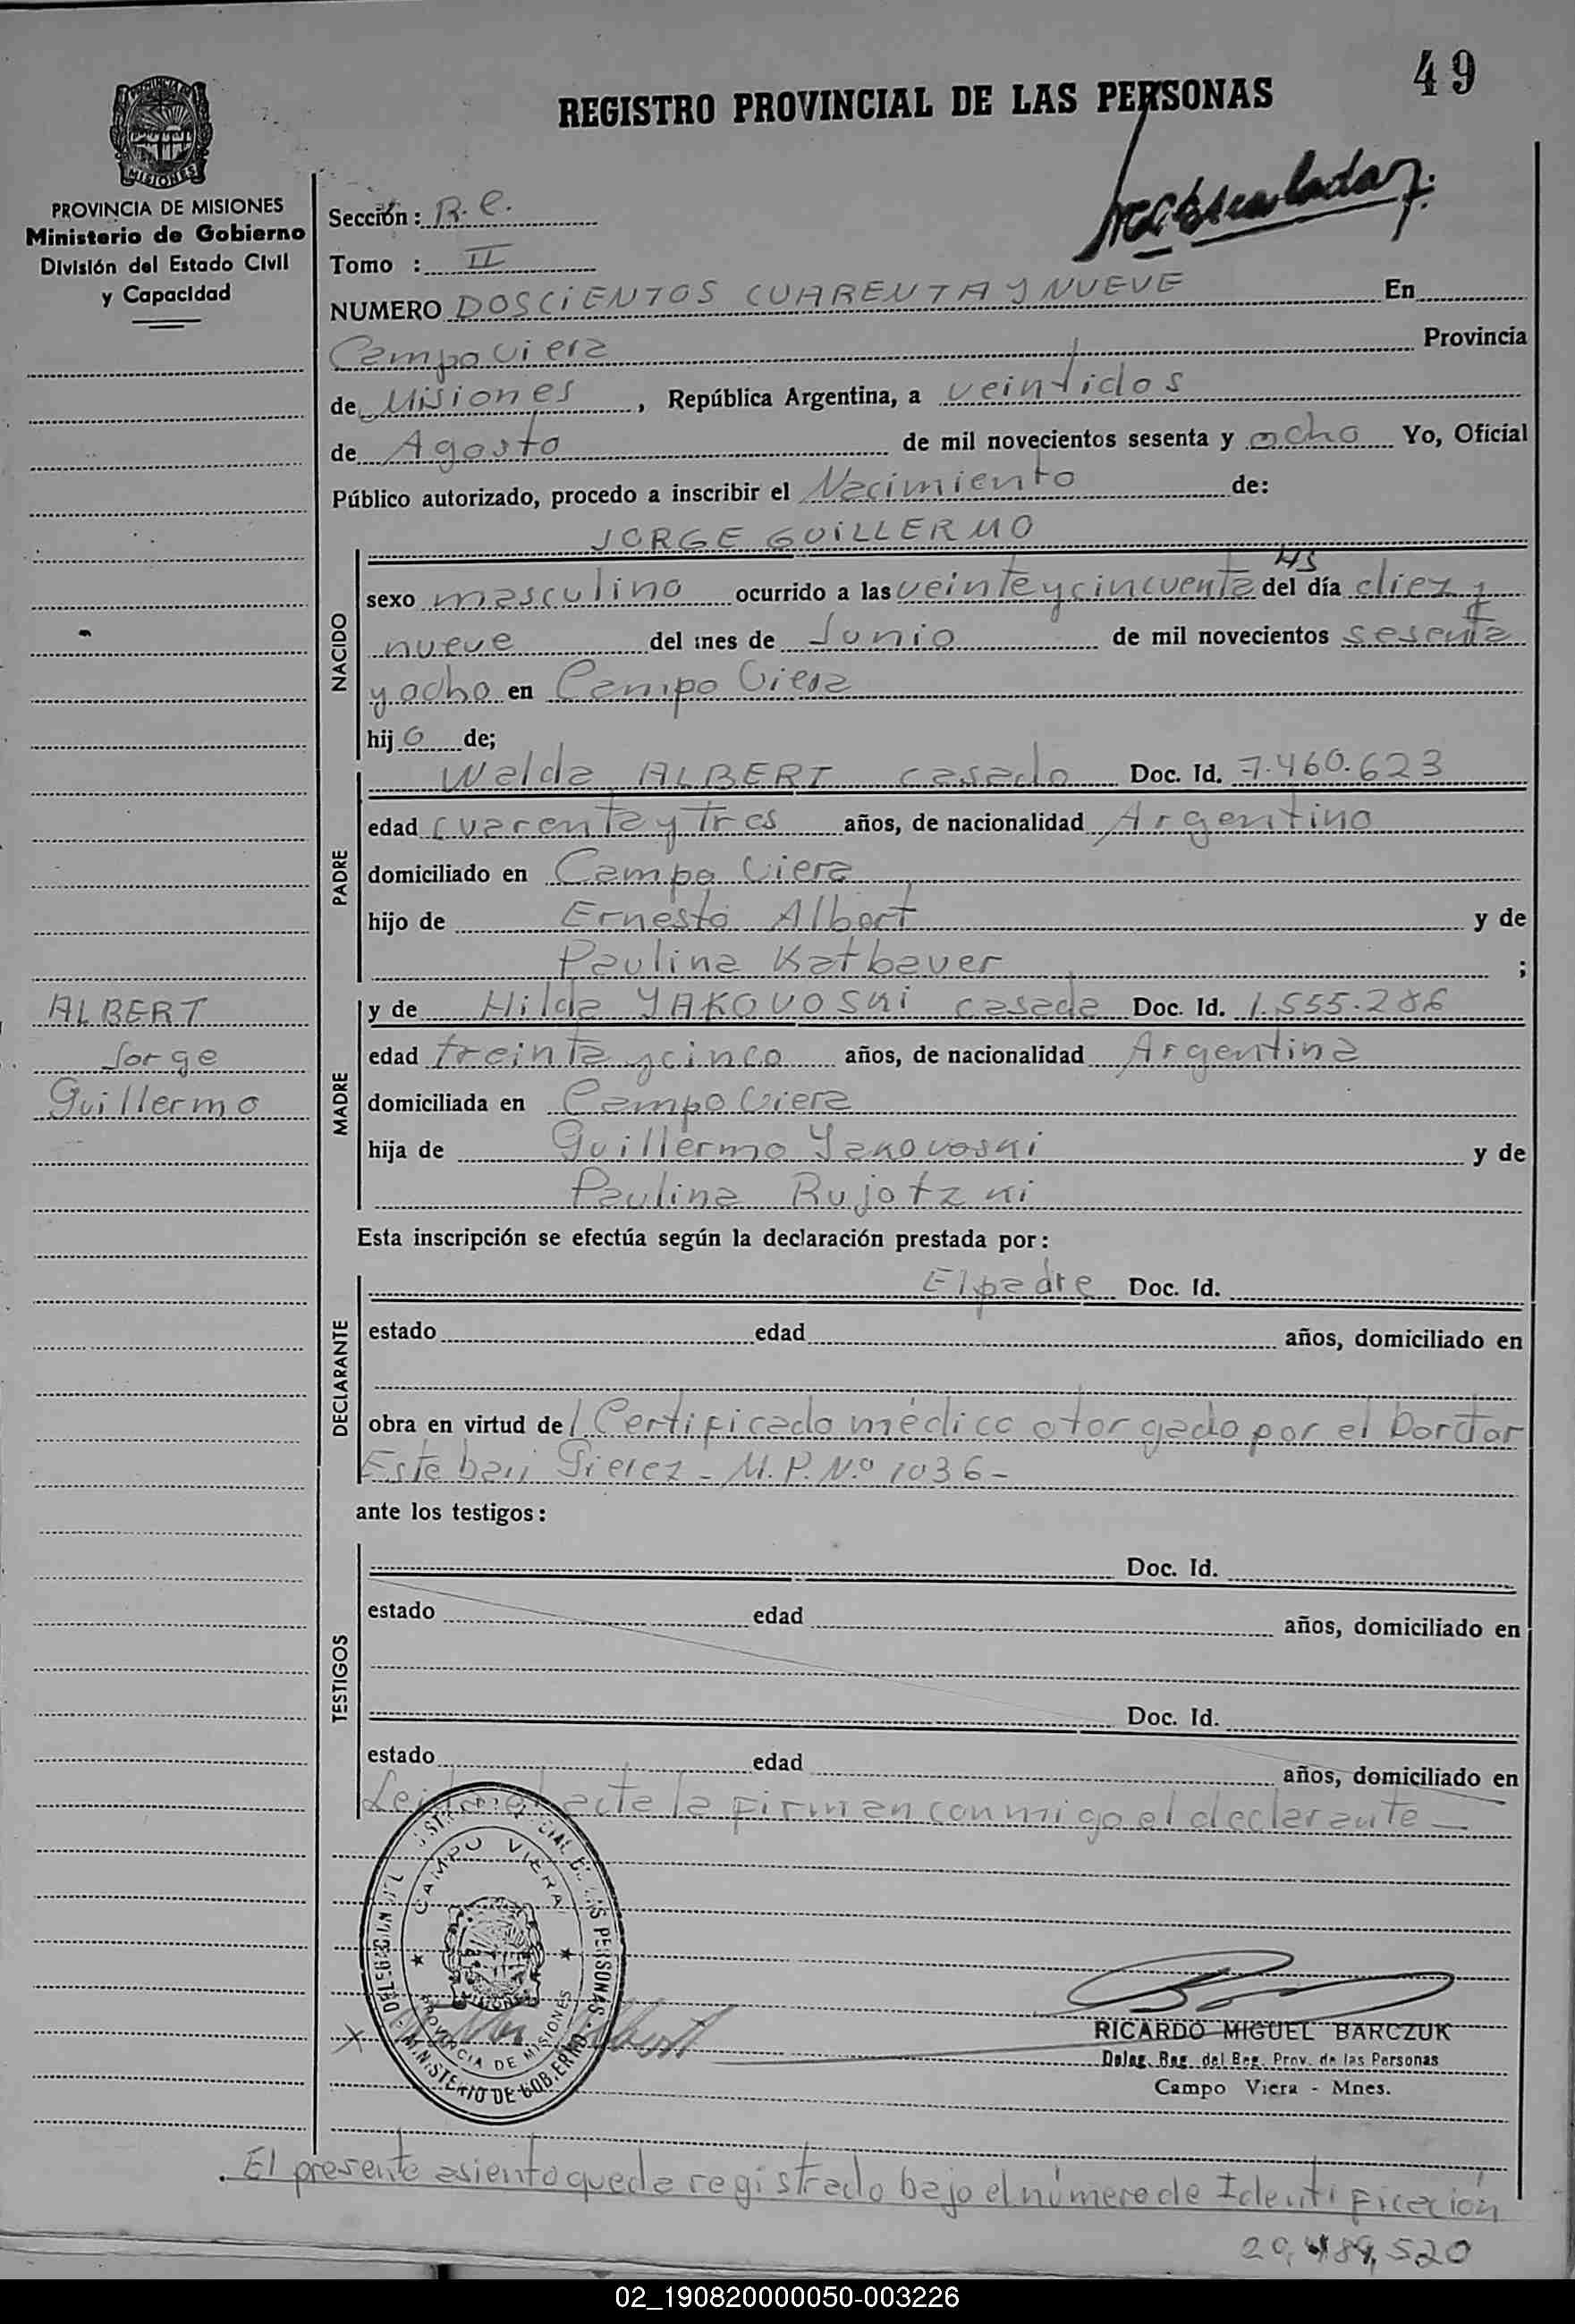 49
REGISTRO PROVINCIAL DE LAS PERSONAS
MISIONES
PROVINCIA DE MISIONES
Ministerio de Gobierno
División del Estado Civil
y Capacidad
Sección: R. C.
Tomo : II
NUMERO DOSCIENTOS CUARENTA Y NUEVE En
Campo Viera Provincia
de Misiones, República Argentina, a veintidos
de Agosto de mil novecientos sesenta y ocho Yo, Oficial
Público autorizado, procedo a inscribir el Nacimiento de:
JORGE GUILLERMO
HS
NACIDO
sexo masculino ocurrido a las veinte y cincuenta del día diez y
nueve del mes de Junio de mil novecientos sesenta
y ocho en Campo Viera
hijo de;
PADRE
Walda ALBERT casado Doc. Id. 7.460.623
edad cuarenta y tres años, de nacionalidad Argentino
domiciliado en Campo Viera
hijo de Ernesto Albert y de
Paulina Katbauer ;
ALBERT
Jorge
Guillermo
MADRE
y de Hilda YAKOVOSKI casada Doc. Id. 1.555.286
edad treinta y cinco años, de nacionalidad Argentina
domiciliada en Campo Viera
hija de Guillermo Yakovoski y de
Paulina Rujotzki
Esta inscripción se efectúa según la declaración prestada por:
DECLARANTE
El padre Doc. Id.
estado edad años, domiciliado en
obra en virtud del Certificado médico otorgado por el Dortor
Esteban - M.P. Nº 1036 -
ante los testigos:
TESTIGOS
Doc. Id.
estado edad años, domiciliado en
Doc. Id.
estado edad años, domiciliado en
acta la firman conmigo el declarante -
CAMPO VIERA
PROVINCIA DE MISIONES
MINISTERIO DE GOBIERNO
RICARDO MIGUEL BARCZUK
Deleg. Reg. del Reg. Prov. de las Personas
Campo Viera - Mnes.
El presente asiento queda registrado bajo el número de Identificación
20,489,520
02_190820000050-003226